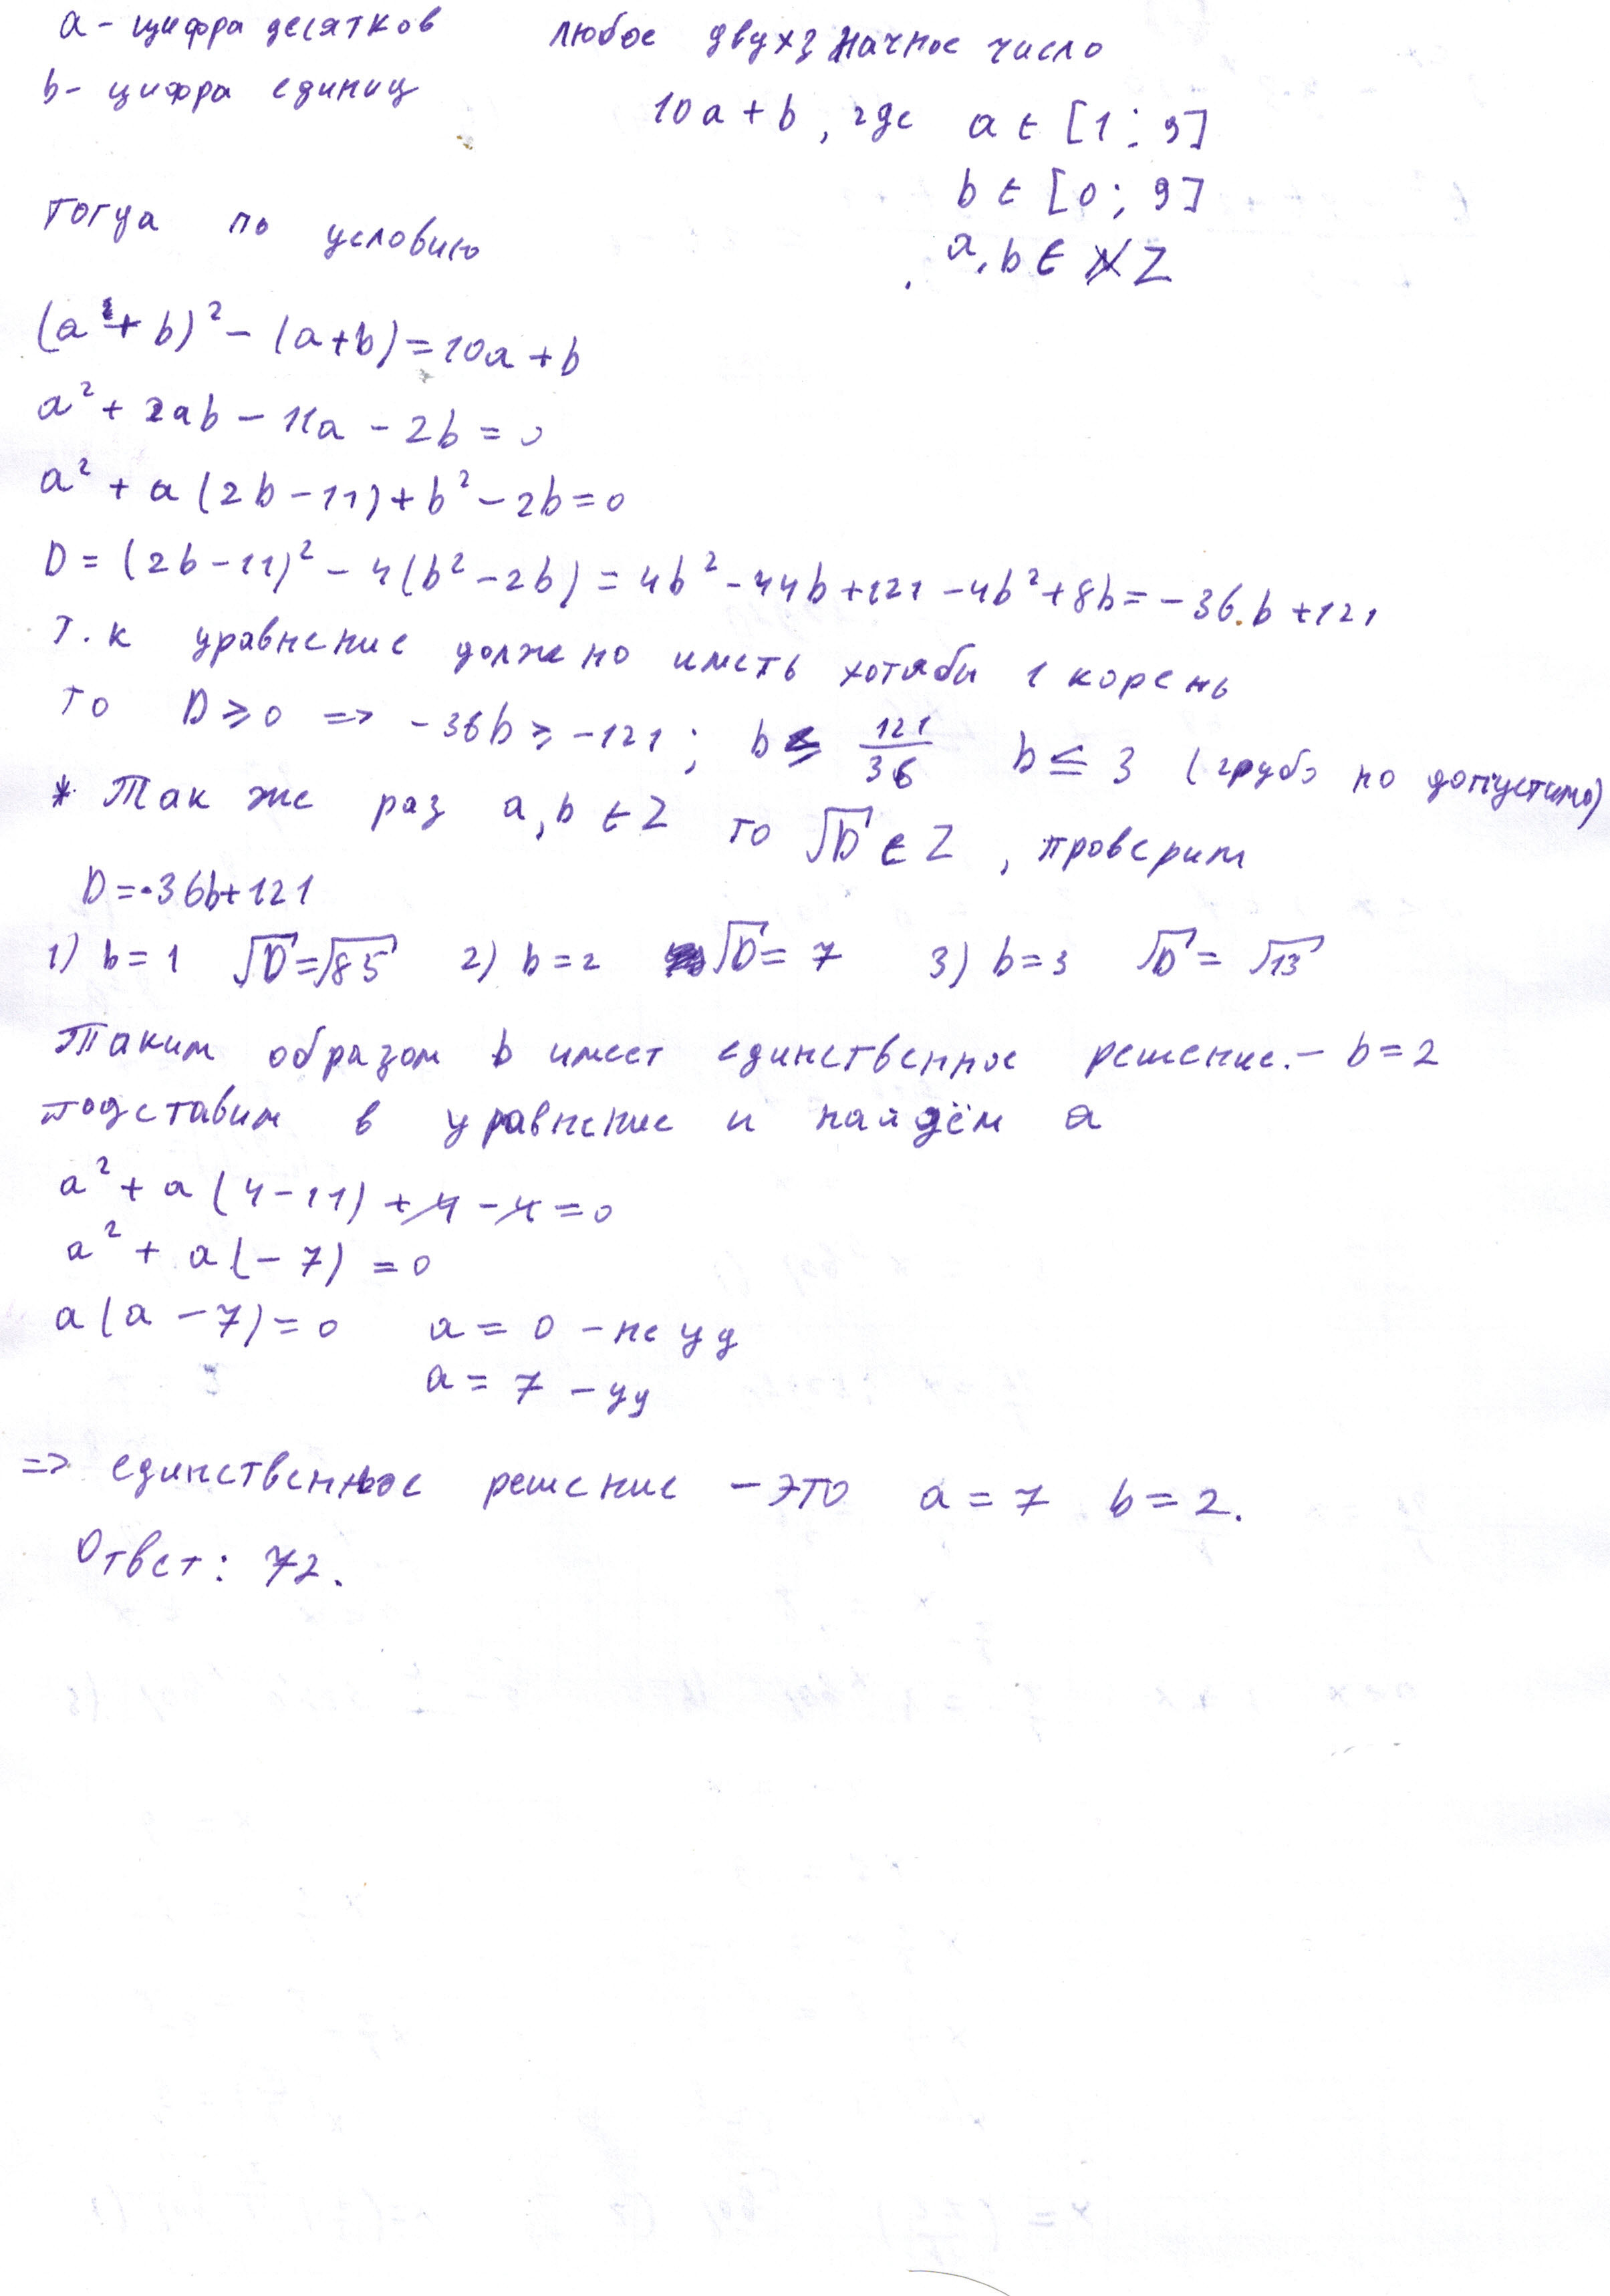 a - цифра десятков
любое двухзначное число
b - цифра единиц
10a + b, где a ∈ [1; 9]
b ∈ [0; 9]
a, b ∈ Z
Тогда по условию
(a + b)² - (a+b) = 10a + b
a² + 2ab - 11a - 2b = 0
a² + a(2b - 11) + b² - 2b = 0
D = (2b - 11)² - 4(b² - 2b) = 4b² - 44b + 121 - 4b² + 8b = -36·b + 121
Т.к уравнение должно иметь хотябы 1 корень
то D ⩾ 0 => -36b ⩾ -121; b ⩽ 121/36 b ≤ 3 (грубо но допустимо)
* Так же раз a, b ∈ Z то √D ∈ Z, проверим
D = -36b + 121
1) b = 1 √D = √85 2) b = 2 √D = 7 3) b = 3 √D = √13
Таким образом b имеет единственное решение. - b = 2
подставим в уравнение и найдём a
a² + a(4 - 11) + 4 - 4 = 0
a² + a(-7) = 0
a(a - 7) = 0 a = 0 - не уд
a = 7 - уд
=> единственное решение - это a = 7 b = 2.
Ответ: 72.